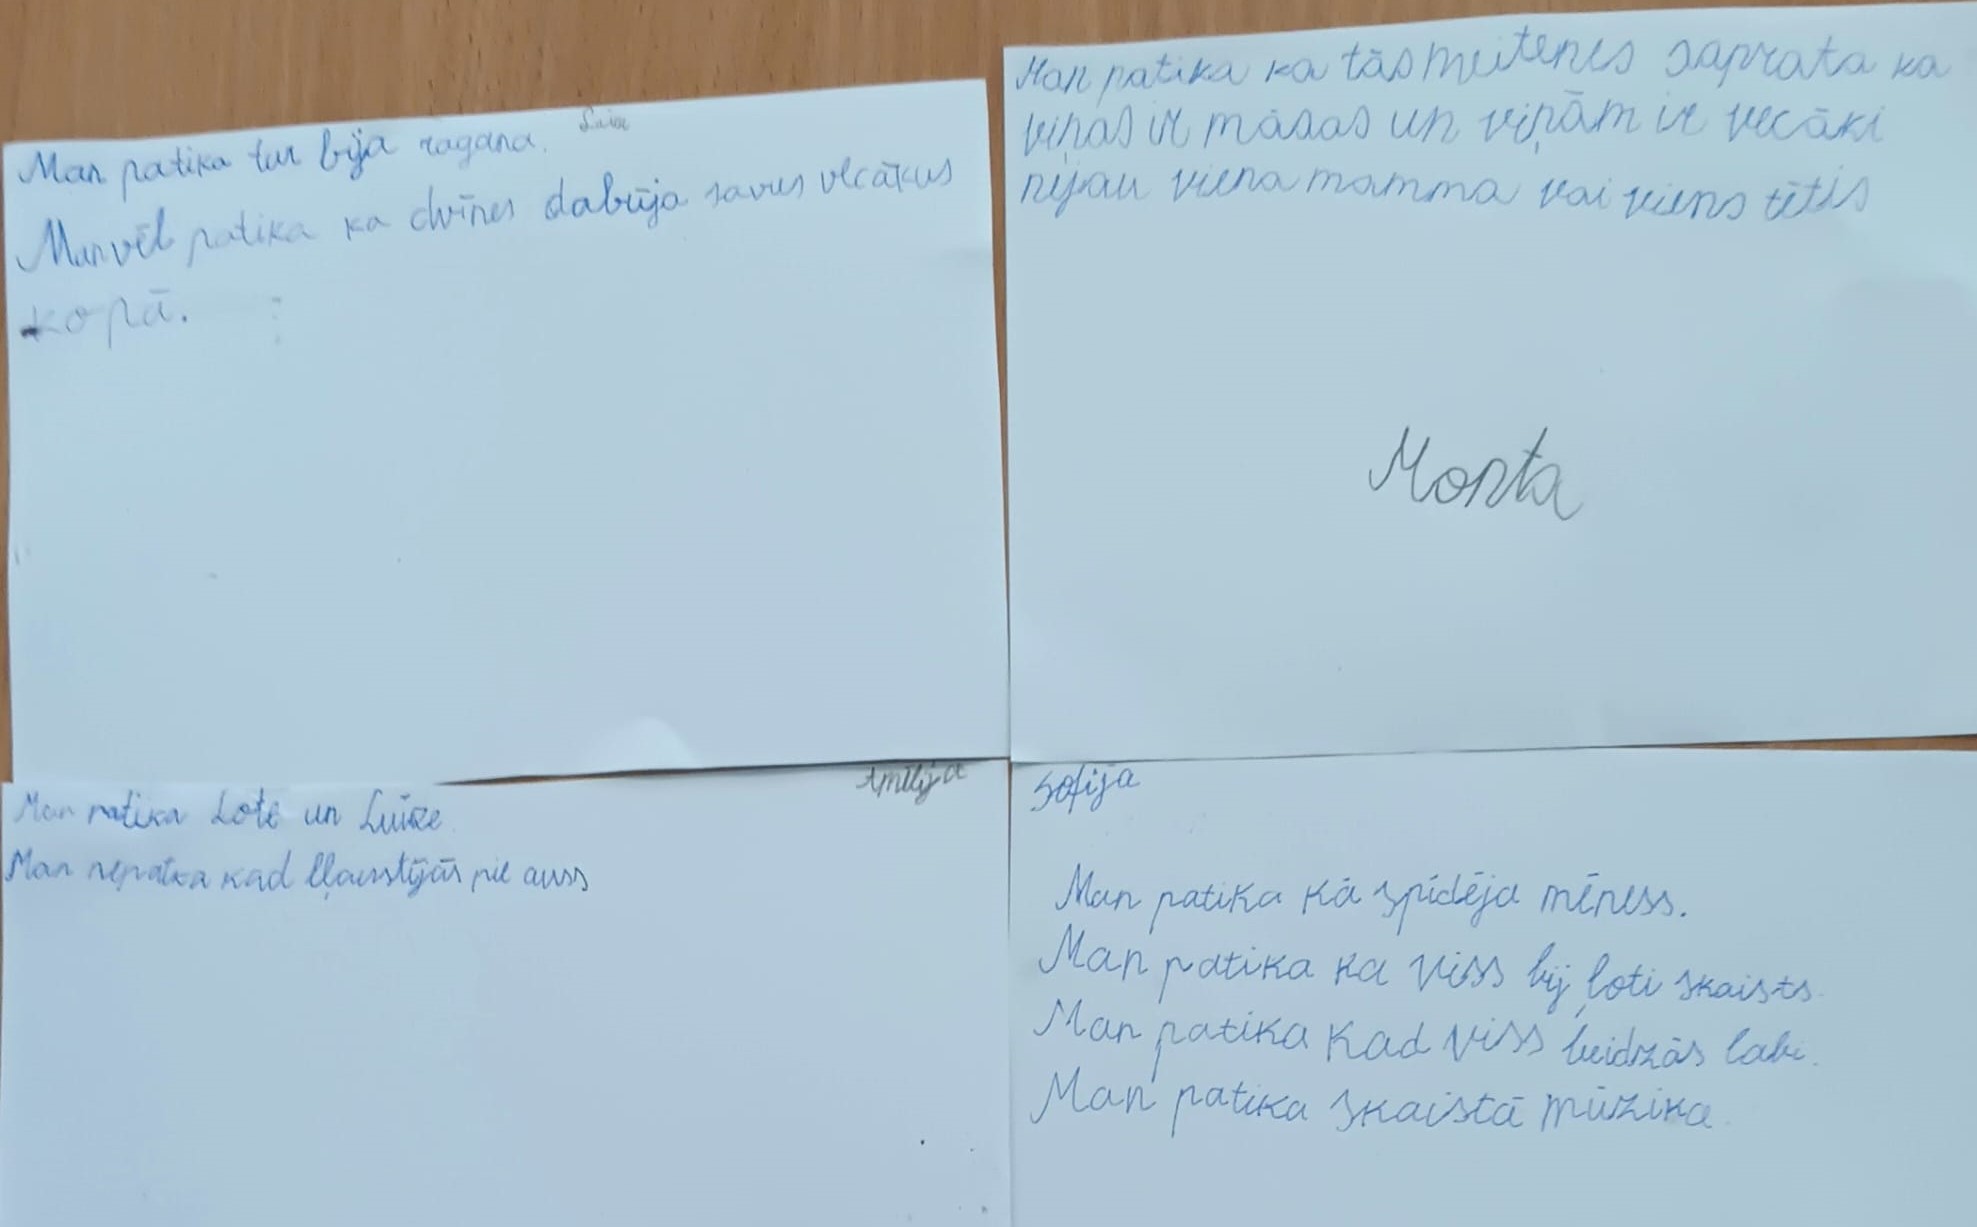 Man patika tur bija ragana.
Man vēl patika ka dvīnes dabūja savus vecākus
kopā.
Man patika ka tās meitenes saprata ka
viņas ir māsas un viņām ir vecāki
nejau viena mamma vai viens tētis
Monta
Amēlija
Man patika Lote un Luīze
Man nepatika kad kļaustījās pie auss
Sofija
Man patika kā spīdēja mēness.
Man patika ka viss bij ļoti skaists.
Man patika kad viss beidzās labi.
Man patika skaistā mūzika